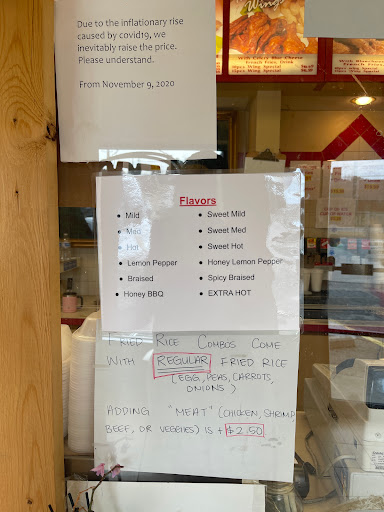 Due to the inflationary rise
caused by covid19, we
inevitably raise the price.
Please understand.
From November 9, 2020
Wings
With Celery, Blue Cheese
French Fries, Drink
Flavors
• Mild
• Med
• Hot
• Lemon Pepper
• Braised
• Honey BBQ
• Sweet Mild
• Sweet Med
• Sweet Hot
• Honey Lemon Pepper
• Spicy Braised
• EXTRA HOT
FRIED RICE COMBOS COME
WITH REGULAR FRIED RICE
(EGG, PEAS, CARROTS,
ONIONS)
ADDING "MEAT" (CHICKEN, SHRIMP
BEEF, OR VEGGIES) IS + $2.50